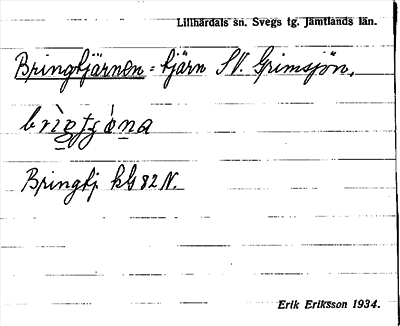 Lillhärdals sn. Svegs tg. Jämtlands län.
Bringtjärnen = tjärn SV. Grimsjön.
Bringtj. kb 82 N.
Erik Eriksson 1934.